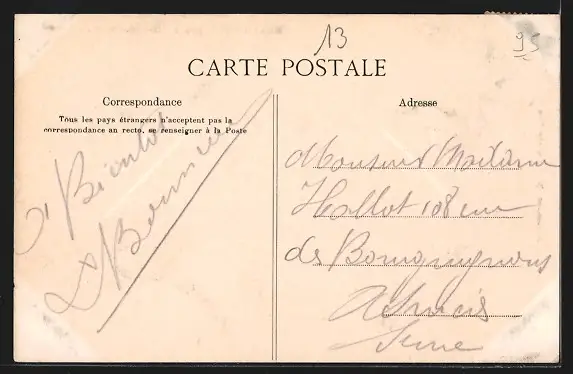 13
95
CARTE POSTALE
Correspondance
Tous les pays étrangers n'acceptent pas la
correspondance au recto, se renseigner à la Poste
A Bientot
Adresse
Monsieur Madame
Hallot 108 rue
des Bourguignons
Asnières
Seine